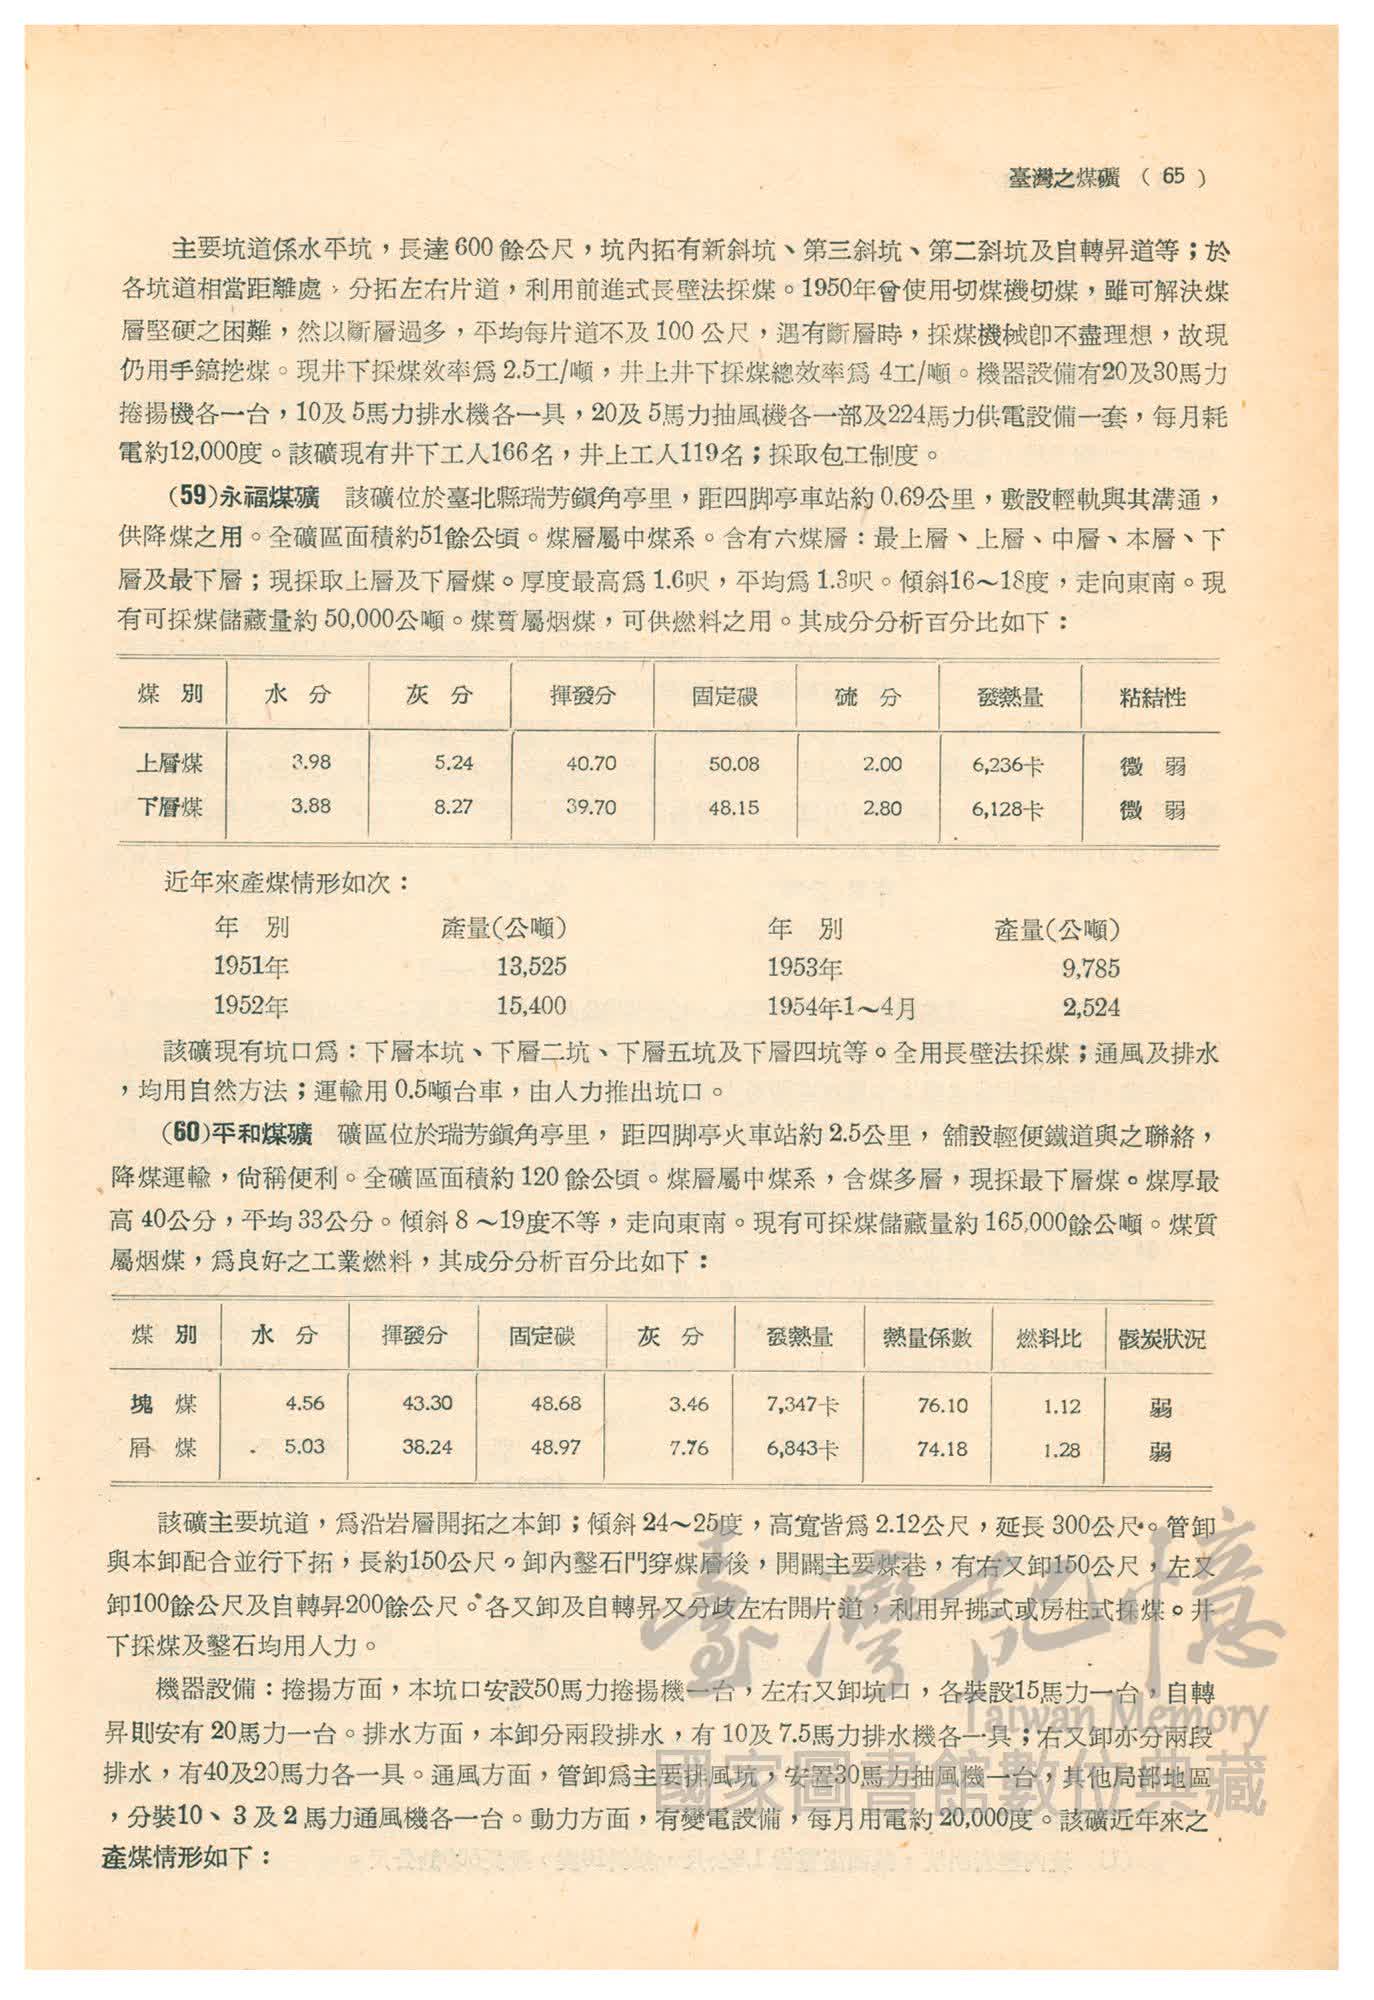 臺灣之煤礦 ( 65 )
主要坑道係水平坑，長達600餘公尺，坑內拓有新斜坑、第三斜坑、第二斜坑及自轉昇道等；於
各坑道相當距離處，分拓左右片道，利用前進式長壁法採煤。1950年曾使用切煤機切煤，雖可解決煤
層堅硬之困難，然以斷層過多，平均每片道不及100公尺，遇有斷層時，採煤機械卽不盡理想，故現
仍用手鎬挖煤。現井下採煤效率爲2.5工/噸，井上井下採煤總效率爲4工/噸。機器設備有20及30馬力
捲揚機各一台，10及5馬力排水機各一具，20及5馬力抽風機各一部及224馬力供電設備一套，每月耗
電約12,000度。該礦現有井下工人166名，井上工人119名；採取包工制度。
(59)永福煤礦 該礦位於臺北縣瑞芳鎭角亭里，距四脚亭車站約0.69公里，敷設輕軌與其溝通，
供降煤之用。全礦區面積約51餘公頃。煤層屬中煤系。含有六煤層：最上層、上層、中層、本層、下
層及最下層；現採取上層及下層煤。厚度最高爲1.6呎，平均爲1.3呎。傾斜16～18度，走向東南。現
有可採煤儲藏量約50,000公噸。煤質屬烟煤，可供燃料之用。其成分分析百分比如下：
煤 別 水 分 灰 分 揮發分 固定碳 硫 分 發熱量 粘結性
上層煤 3.98 5.24 40.70 50.08 2.00 6,236卡 微 弱
下層煤 3.88 8.27 39.70 48.15 2.80 6,128卡 微 弱
近年來產煤情形如次：
年 別 產量(公噸) 年 別 產量(公噸)
1951年 13,525 1953年 9,785
1952年 15,400 1954年1～4月 2,524
該礦現有坑口爲：下層本坑、下層二坑、下層五坑及下層四坑等。全用長壁法採煤；通風及排水
，均用自然方法；運輸用0.5噸台車，由人力推出坑口。
(60)平和煤礦 礦區位於瑞芳鎭角亭里，距四脚亭火車站約2.5公里，舖設輕便鐵道與之聯絡，
降煤運輸，尙稱便利。全礦區面積約120餘公頃。煤層屬中煤系，含煤多層，現採最下層煤。煤厚最
高40公分，平均33公分。傾斜8～19度不等，走向東南。現有可採煤儲藏量約165,000餘公噸。煤質
屬烟煤，爲良好之工業燃料，其成分分析百分比如下：
煤 別 水 分 揮發分 固定碳 灰 分 發熱量 熱量係數 燃料比 骸炭狀況
塊 煤 4.56 43.30 48.68 3.46 7,347卡 76.10 1.12 弱
屑 煤 5.03 38.24 48.97 7.76 6,843卡 74.18 1.28 弱
該礦主要坑道，爲沿岩層開拓之本卸；傾斜24～25度，高寬皆爲2.12公尺，延長300公尺。管卸
與本卸配合並行下拓，長約150公尺。卸內鑿石門穿煤層後，開闢主要煤巷，有右又卸150公尺，左又
卸100餘公尺及自轉昇200餘公尺。各又卸及自轉昇又分歧左右開片道，利用昇拂式或房柱式採煤。井
下採煤及鑿石均用人力。
機器設備：捲揚方面，本坑口安設50馬力捲揚機一台，左右又卸坑口，各裝設15馬力一台，自轉
昇則安有20馬力一台。排水方面，本卸分兩段排水，有10及7.5馬力排水機各一具；右又卸亦分兩段
排水，有40及20馬力各一具。通風方面，管卸爲主要排風坑，安置30馬力抽風機一台，其他局部地區
，分裝10、3及2馬力通風機各一台。動力方面，有變電設備，每月用電約20,000度。該礦近年來之
產煤情形如下：
臺灣記憶
Taiwan Memory
國家圖書館數位典藏